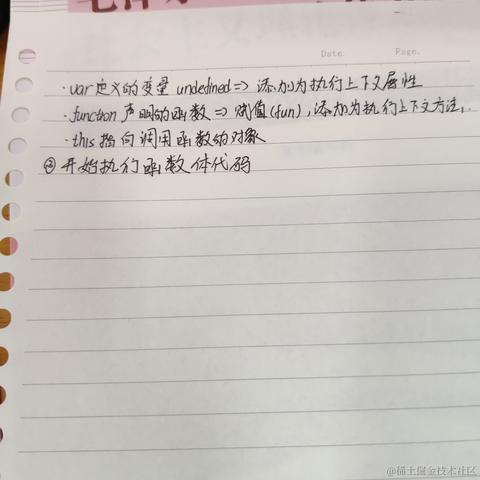 Date.
Page.
·var 定义的变量 undefined => 添加为执行上下文属性
·function 声明的函数 => 赋值(fun),添加为执行上下文方法.
·this 指向调用函数的对象
② 开始执行函数体代码
@稀土掘金技术社区